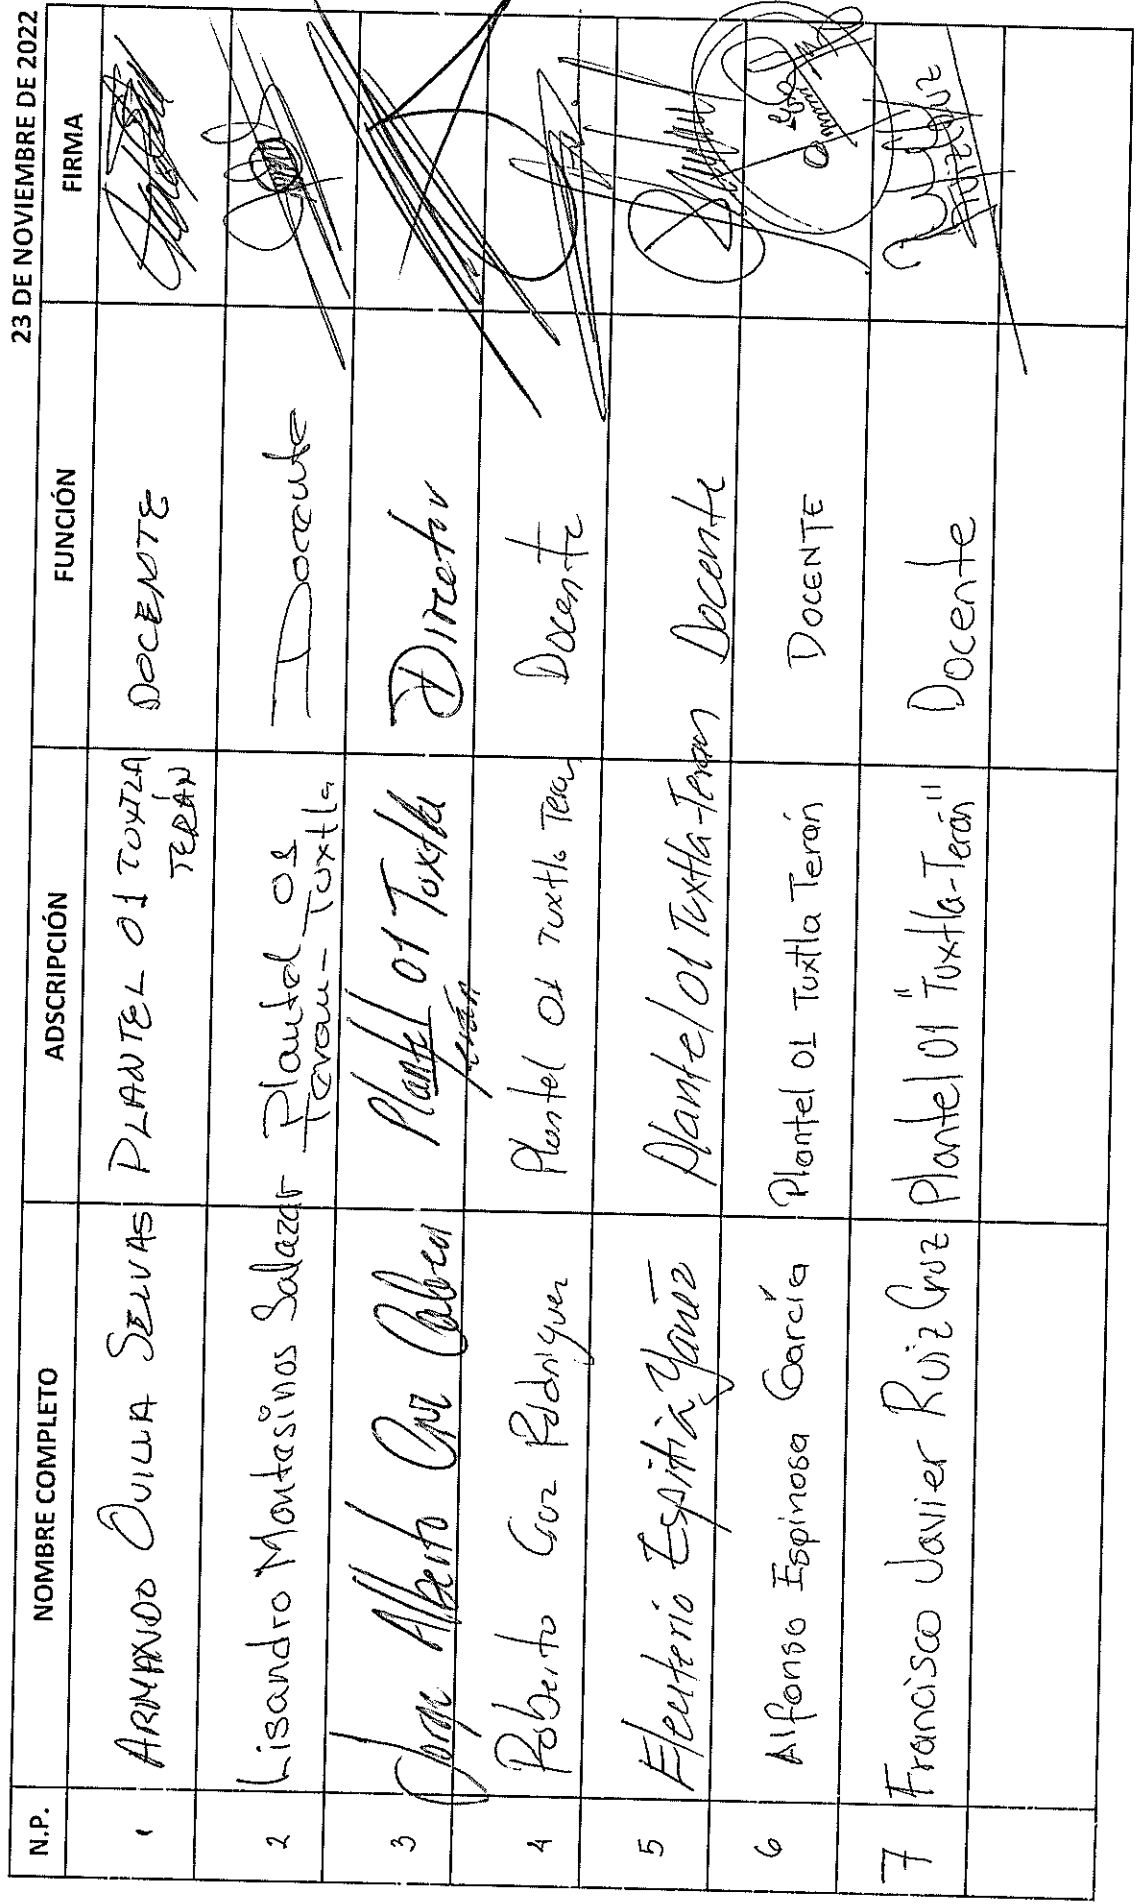 23 DE NOVIEMBRE DE 2022
N.P. NOMBRE COMPLETO ADSCRIPCIÓN FUNCIÓN FIRMA
1 ARMANDO OVILLA SELVAS PLANTEL 01 TUXTLA DOCENTE
TERÁN
2 Lisandro Montesinos Salazar Plantel 01 Docente
Teran-Tuxtla
3 Jorge Alberto Cruz Plantel 01 Tuxtla Director
Terán
4 Roberto Cruz Rodriguez Plantel 01 Tuxtla Teran Docente
5 Eleuterio Espitia Yañez Plantel 01 Tuxtla-Teran Docente
6 Alfonso Espinosa García Plantel 01 Tuxtla Terán DOCENTE
7 Francisco Javier Ruiz Cruz Plantel 01 "Tuxtla-Terán" Docente